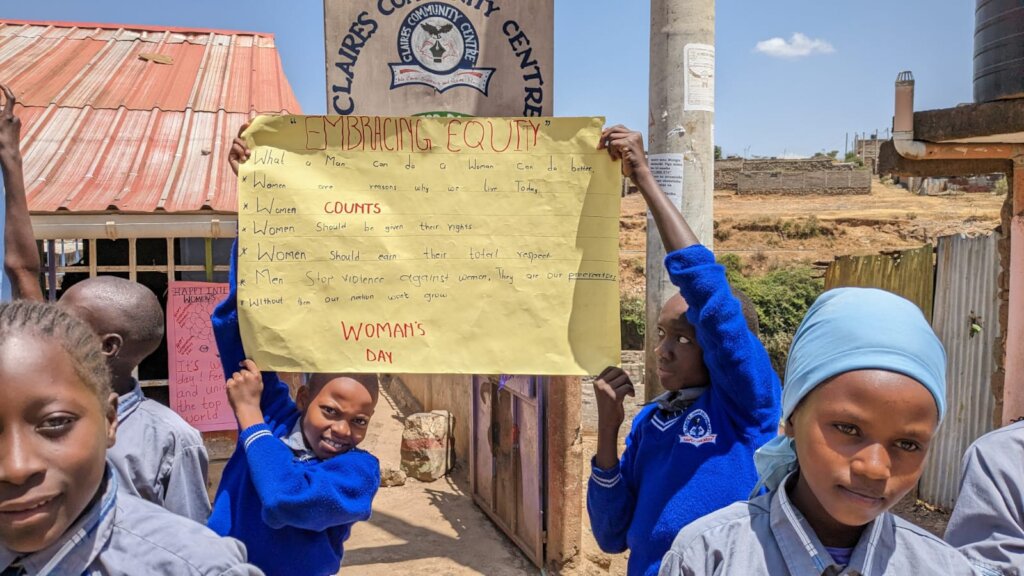 CLAIRES COMMUNITY CENTRE
CLAIRES COMMUNITY CENTRE
"EMBRACING EQUITY"
What a Man can do a Woman can do better
* Women are reasons why we live Today
* Women COUNTS
* Women Should be given their rights
* Women Should earn their totall respect
* Men Stop violence against women. They are our
* Without them our nation wont grow
WOMAN'S
DAY
HAPPY INTE
WOMEN'S
It's w
day I
and un
the top
world